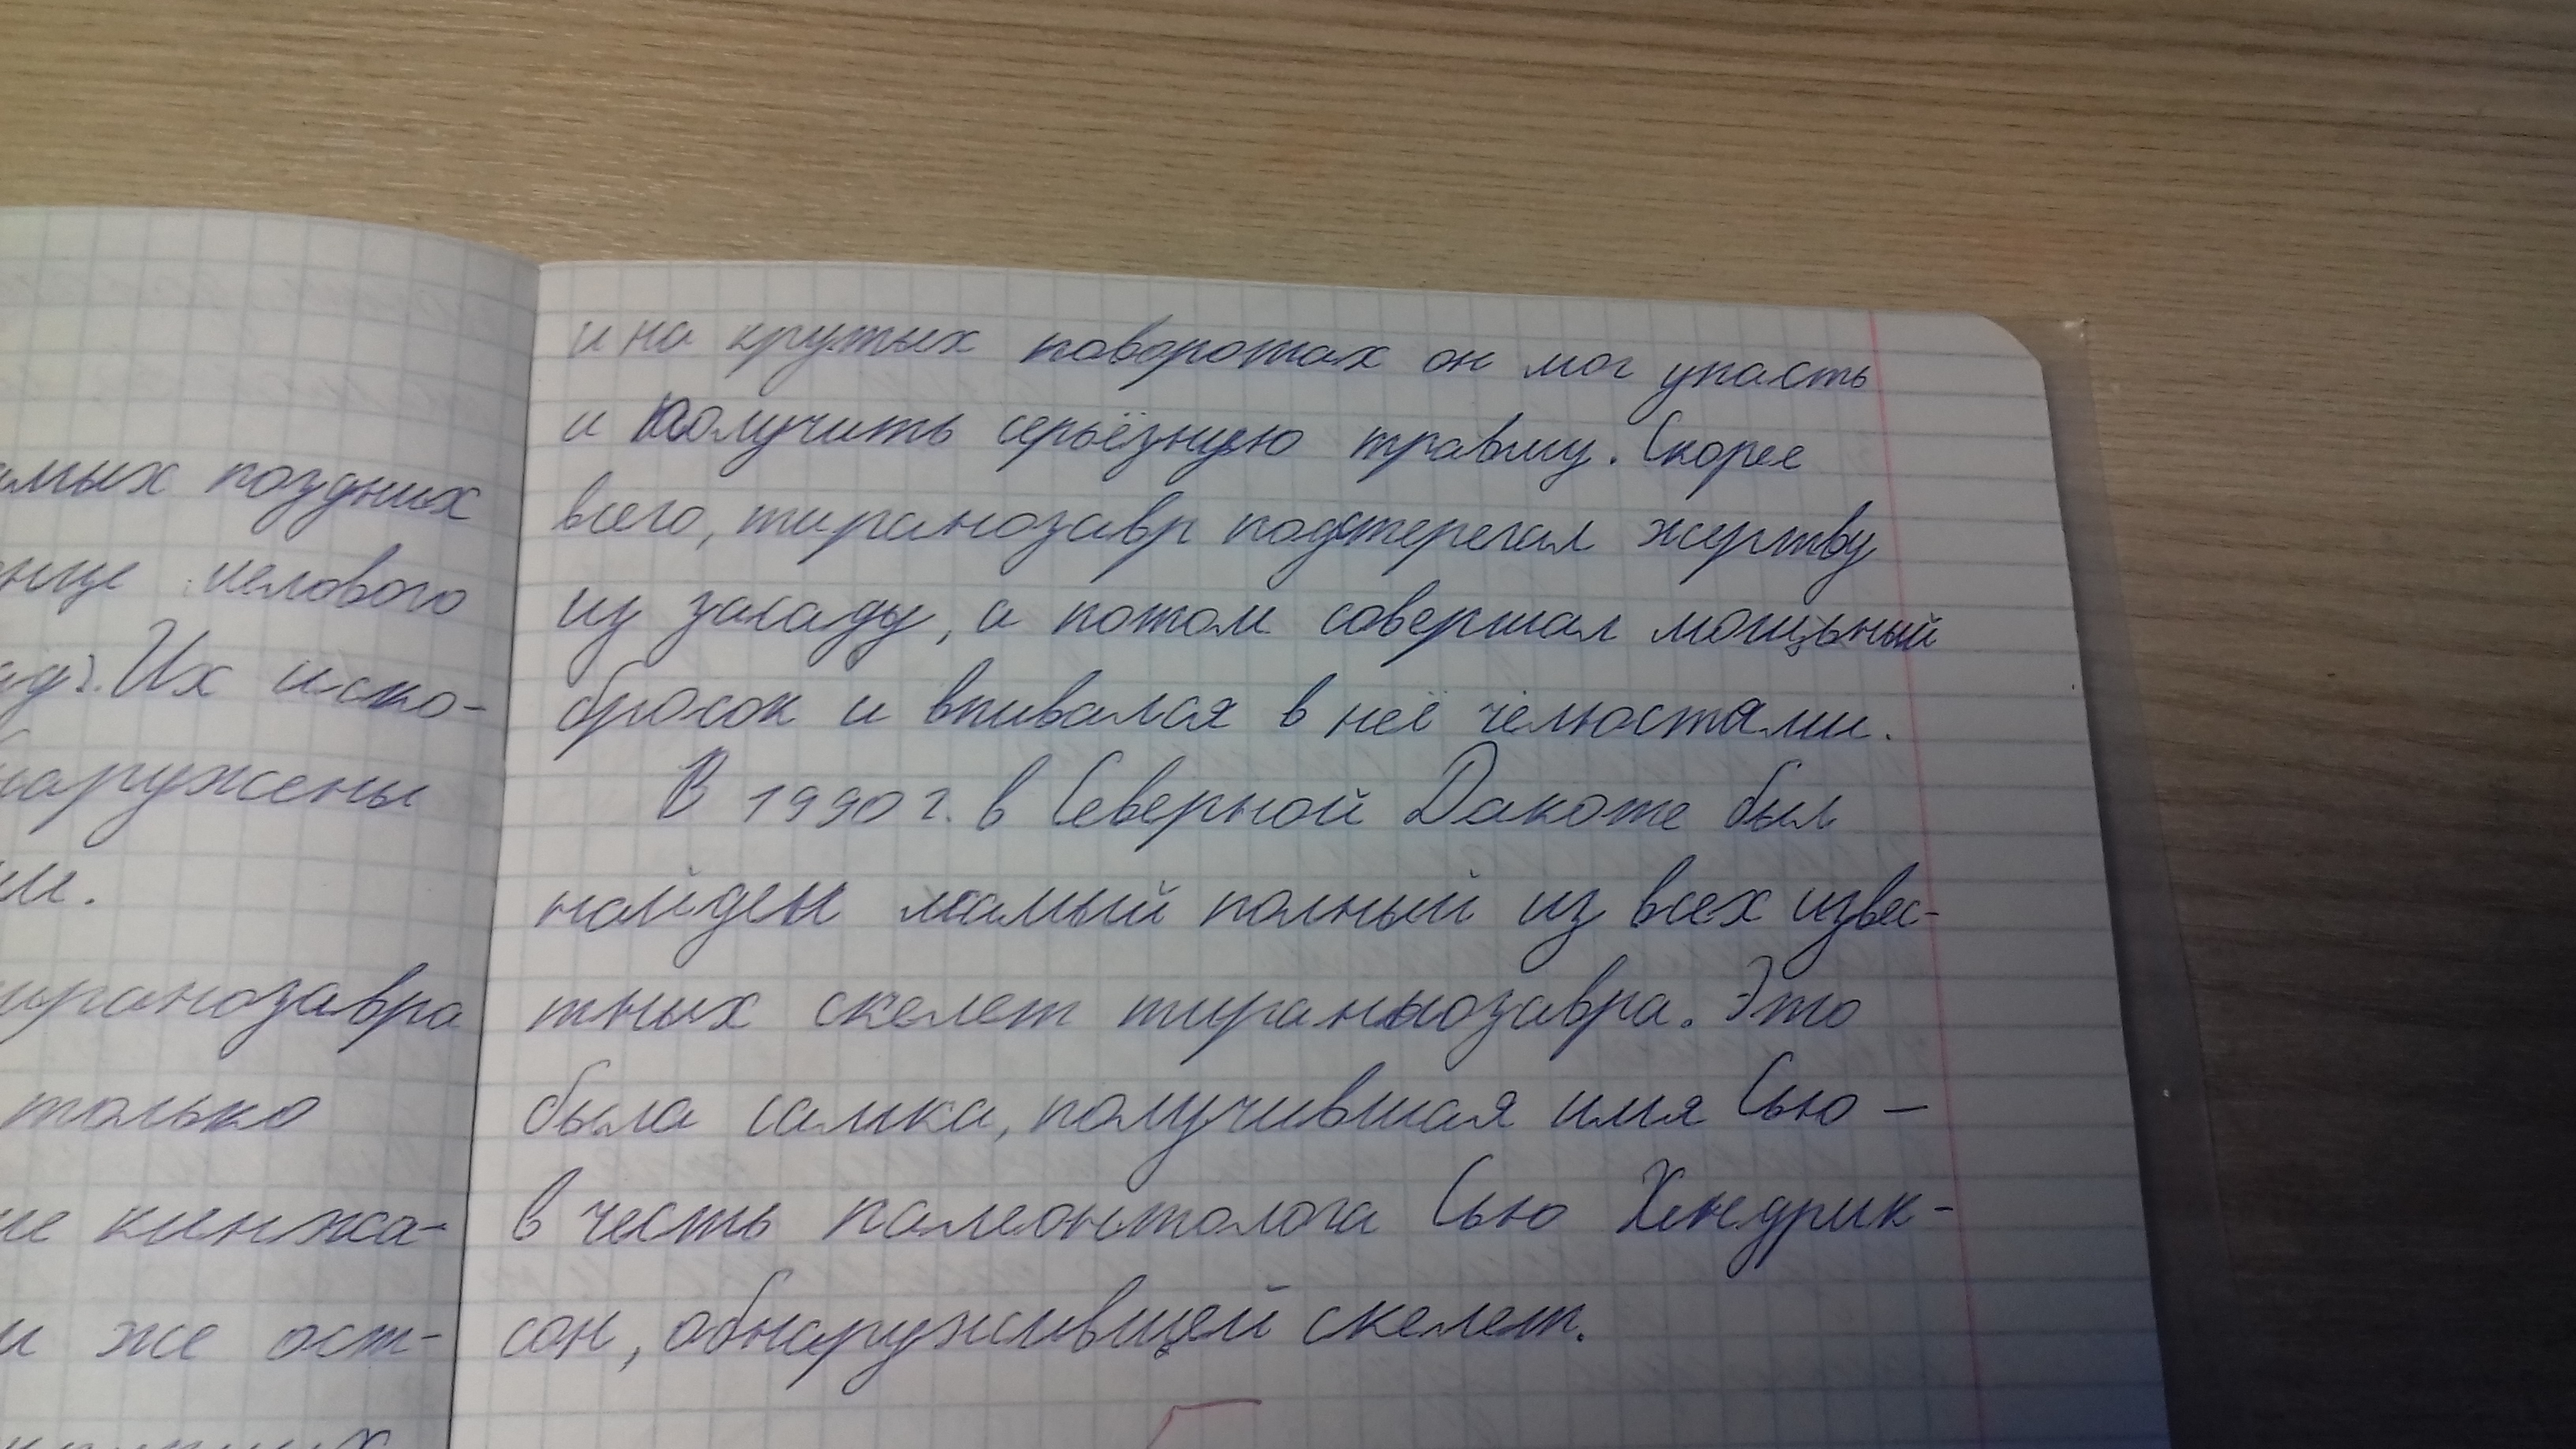 поздних
мелового
Их иско-
только
кинжа-
же ост-
и на крутых поворотах он мог упасть
и получить серьёзную травму. Скорее
всего, тиранозавр подстерегал жертву
из засады, а потом совершал мощный
бросок и впивался в неё челюстями.
В 1990 г. в Северной Дакоте был
найден самый полный из всех извес-
тных скелет тиранозавра. Это
была самка, получившая имя Сью –
в честь палеонтолога Сью Хендрик-
сон, обнаружившей скелет.